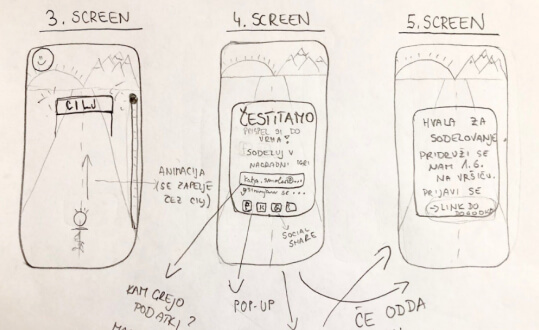 3. SCREEN
CILJ
ANIMACIJA
(SE ZAPELJE
ČEZ CILJ)
KAM GREJO
PODATKI?
4. SCREEN
ČESTITAMO
PRISPEL SI DO
VRHA!
SODELUJ V
NAGRADNI IGRI
SOCIAL
SHARE
POP-UP
5. SCREEN
HVALA ZA
SODELOVANJE.
PRIDRUŽI SE
NAM 1.6.
NA VRŠIČU.
PRIJAVI SE
→ LINK DO
ČE ODDA